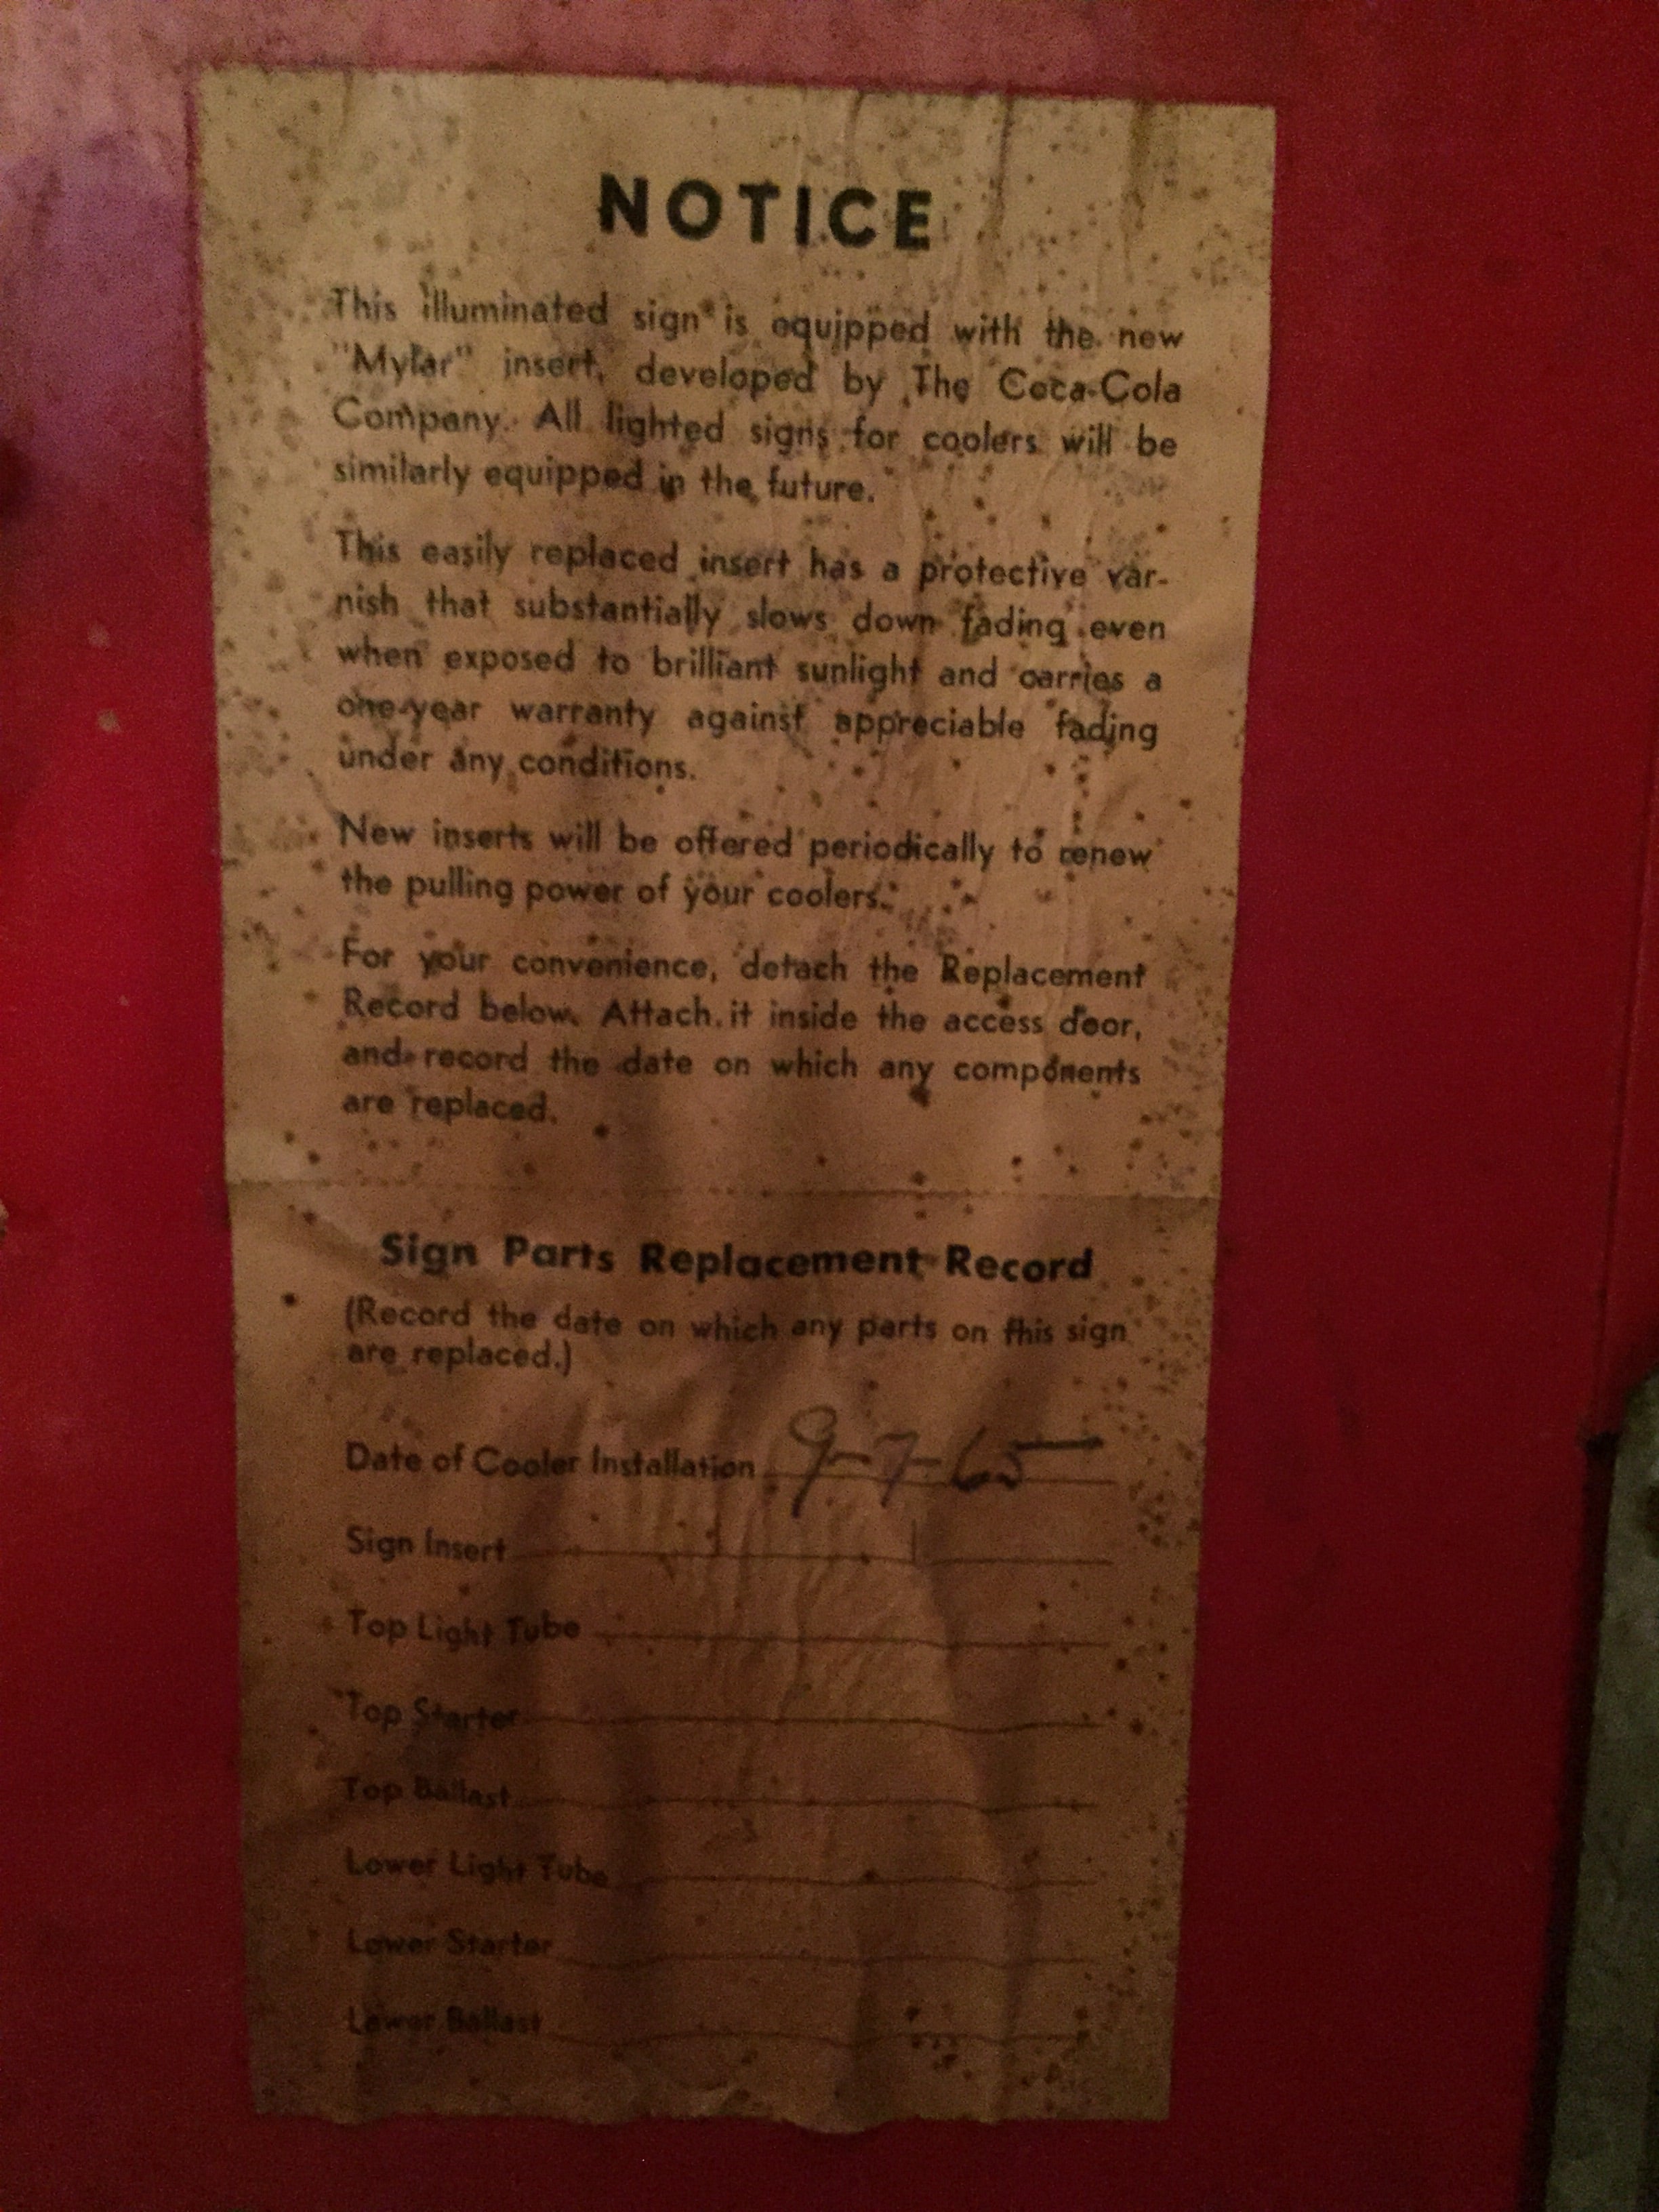 NOTICE
This illuminated sign is equipped with the new
"Mylar" insert, developed by The Coca-Cola
Company. All lighted signs for coolers will be
similarly equipped in the future.
This easily replaced insert has a protective var-
nish that substantially slows down fading even
when exposed to brilliant sunlight and carries a
one-year warranty against appreciable fading
under any conditions.
New inserts will be offered periodically to renew
the pulling power of your coolers.
For your convenience, detach the Replacement
Record below. Attach it inside the access door,
and record the date on which any components
are replaced.
Sign Parts Replacement Record
(Record the date on which any parts on this sign
are replaced.)
Date of Cooler Installation 9-7-65
Sign Insert
Top Light Tube
Top Starter
Top Ballast
Lower Light Tube
Lower Starter
Lower Ballast